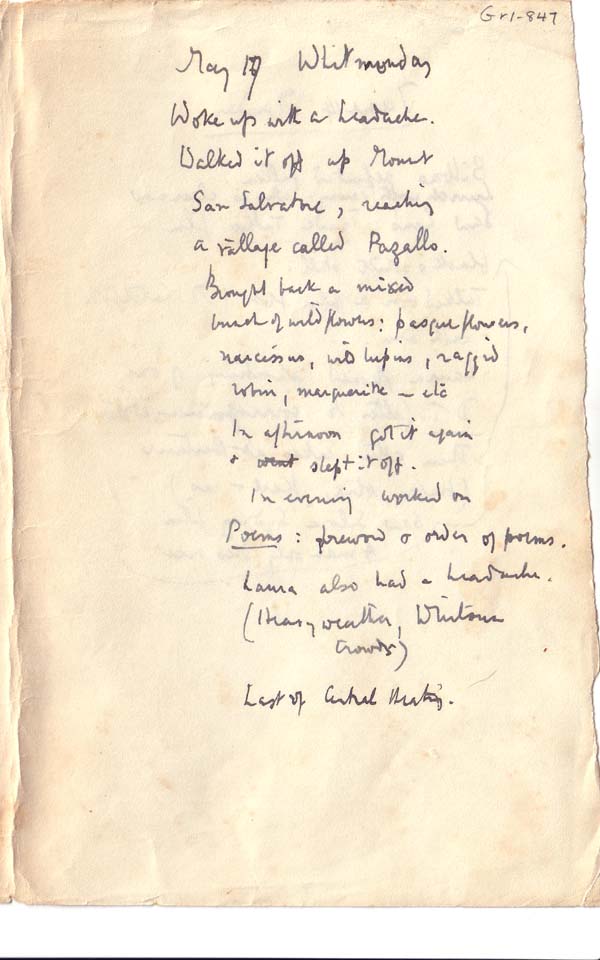 Gr1-847
May 17 Whitmonday
Woke up with a headache.
Walked it off up Mount
San Salvatore, reaching
a village called Pazallo.
Brought back a mixed
bunch of wildflowers: pasque flowers,
narcissus, wild lupins, ragged
robin, marguerite – etc
In afternoon got it again
& went slept it off.
In evening worked on
Poems: foreword & order of poems.
Laura also had a headache.
(Heavy weather, Whitsun
crowds)
Last of Central Heating.